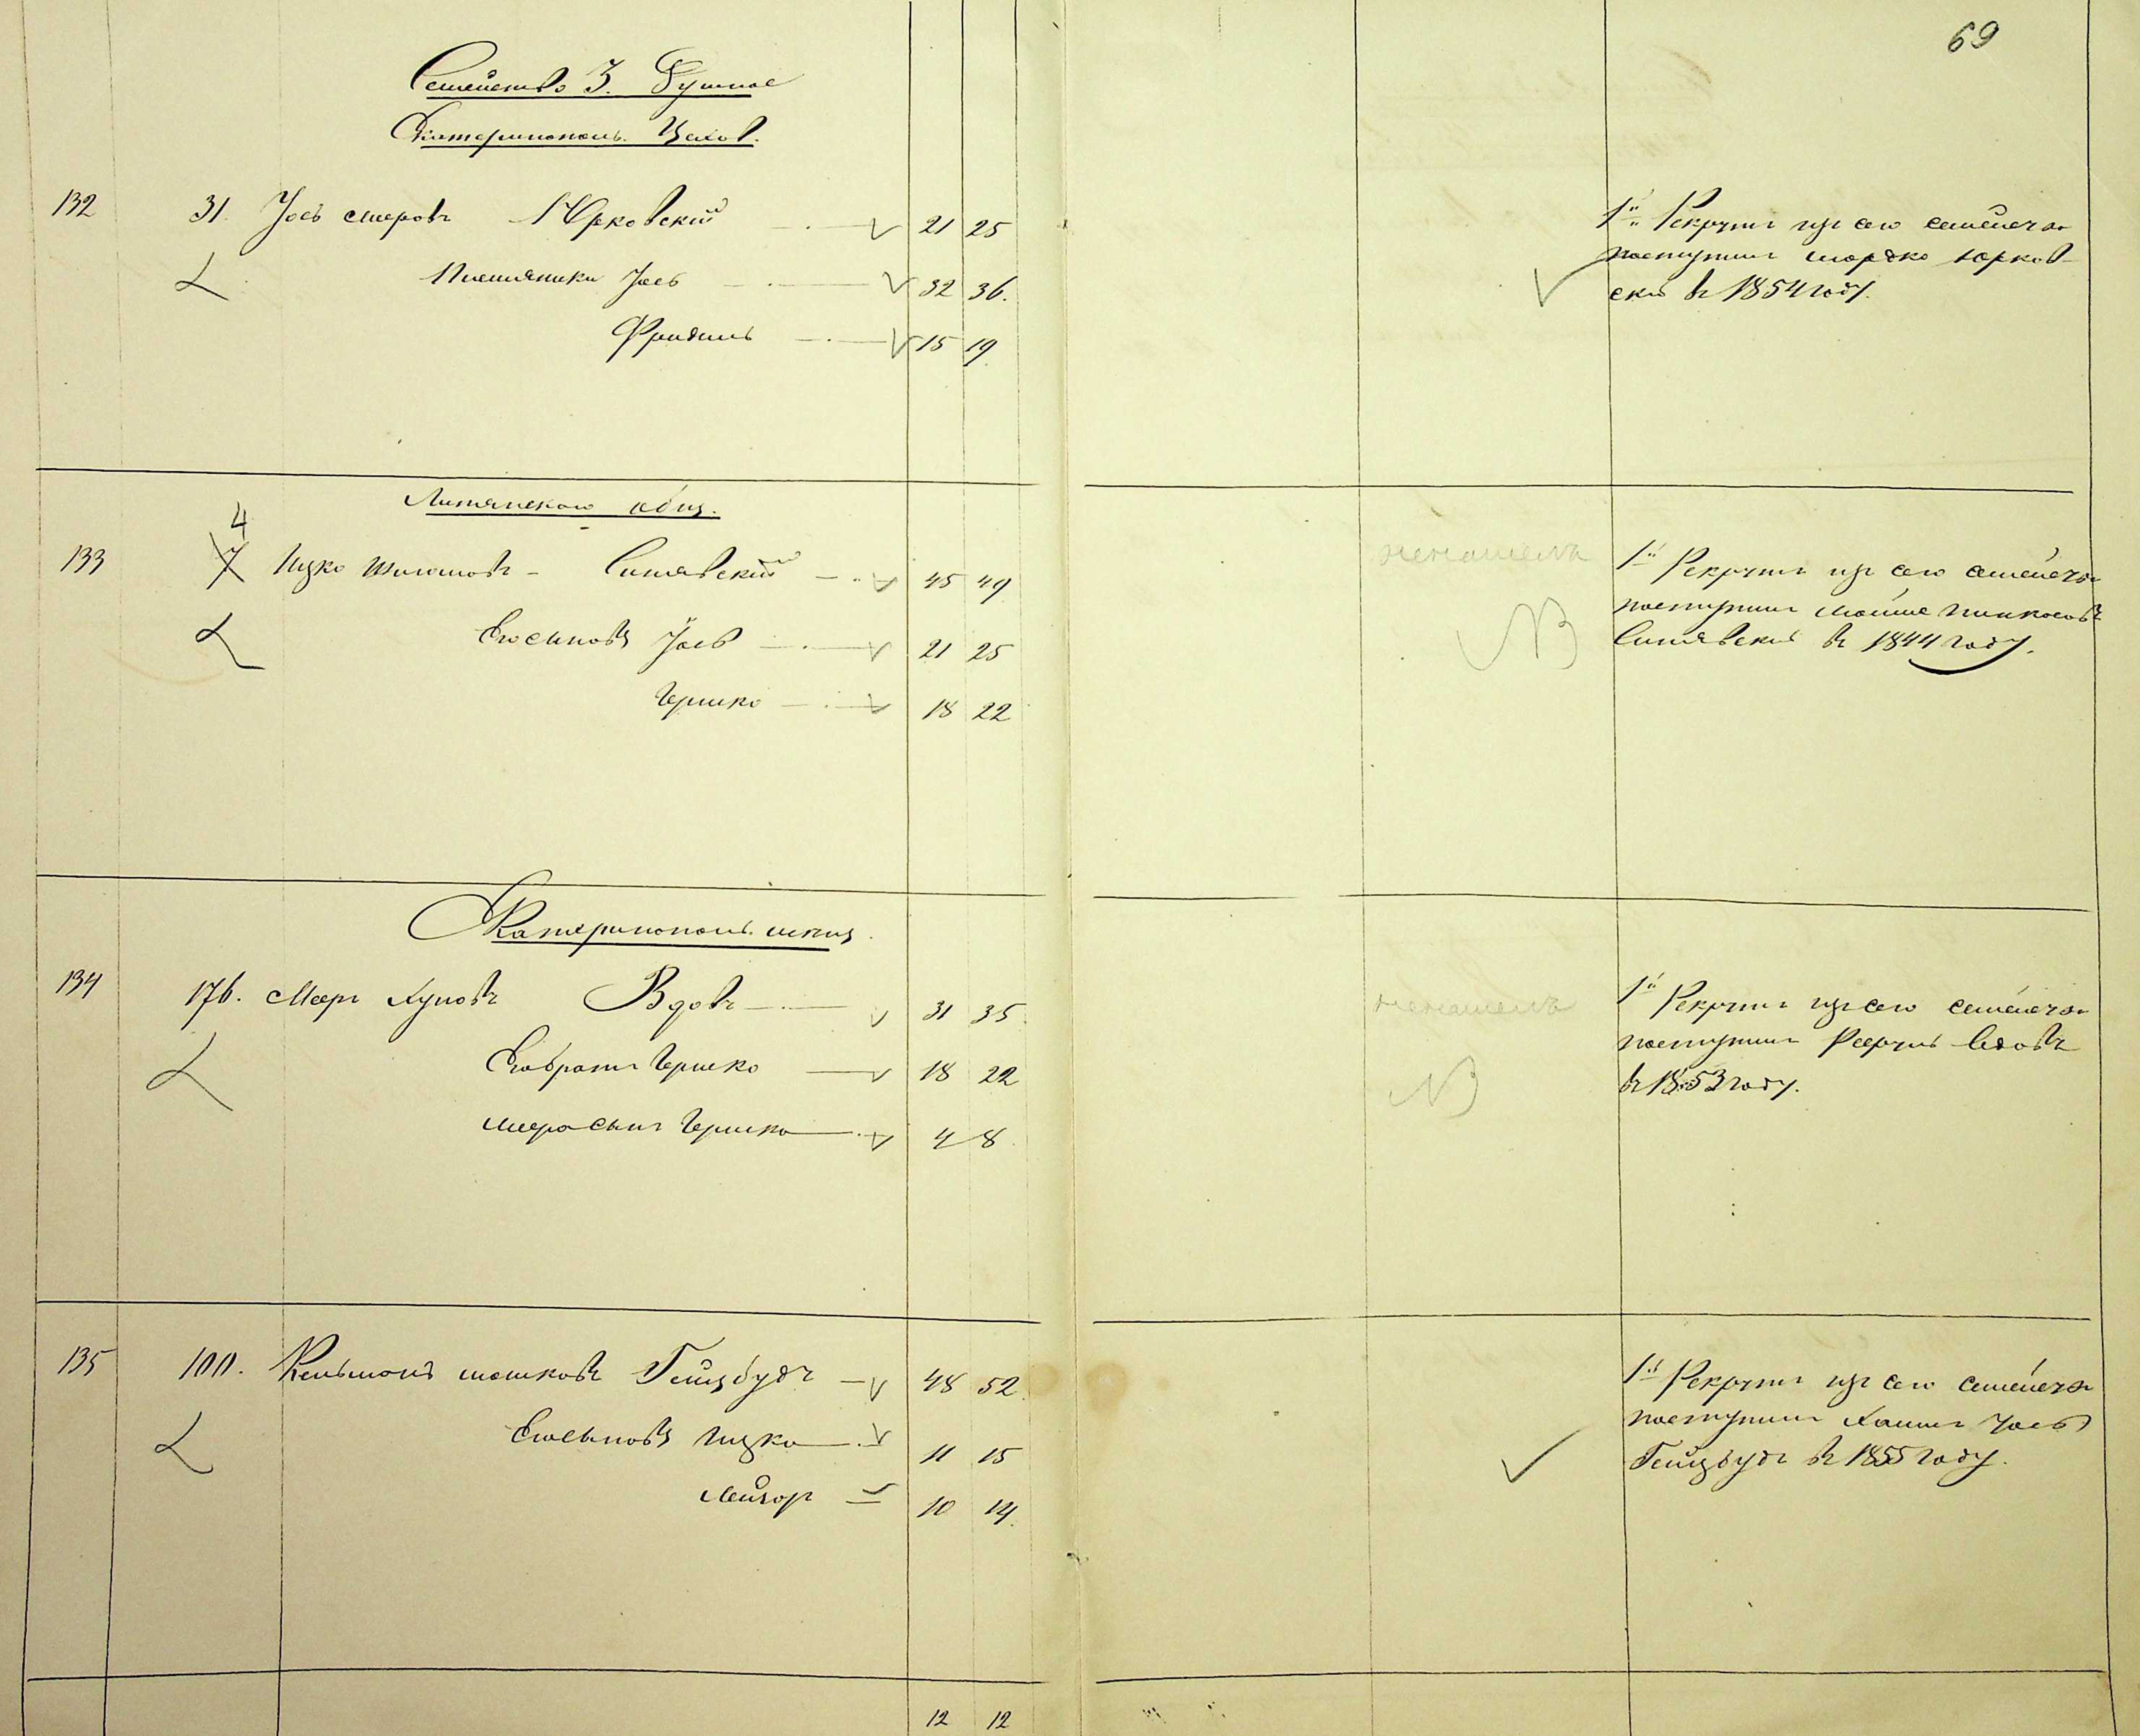 69
Семейство 3. Душное
Екатеринополь. Цехов.
132 31. Иось Меровъ Юрковскій 21 25
Племяники Иось 32 36.
Фридель 15 19
1й Рекрутъ изъ сего семейства
поступилъ Мордко Юрков-
скій въ 1854 году.
Литянскаго общ.
4
133 7 Ицко Шлiомовъ - Синявскій 45 49
Его сыновья Иось 21 25
Гершко 18 22
ненашелъ
NB
1й Рекрутъ изъ сего семейства
поступилъ Мойше Пинкосовъ
Синявскій въ 1844 году.
Екатеринополь. мещ.
134 176. Меер Хуновъ Вдовъ 31 35.
Его братъ Гершко 18 22
Меера сынъ Гершко 4 8.
ненашелъ
NB
1й Рекрутъ изъ сего семейства
поступилъ Вдовъ
въ 1853 году.
135 100. Кельмонъ Мошковъ Гейзбудъ 48 52.
Его сыновья Ицко 11 15
Лейзор 10 14.
1й Рекрутъ изъ сего семейства
поступилъ Хаимъ Иось
Гейзбудъ въ 1855 году.
12 12